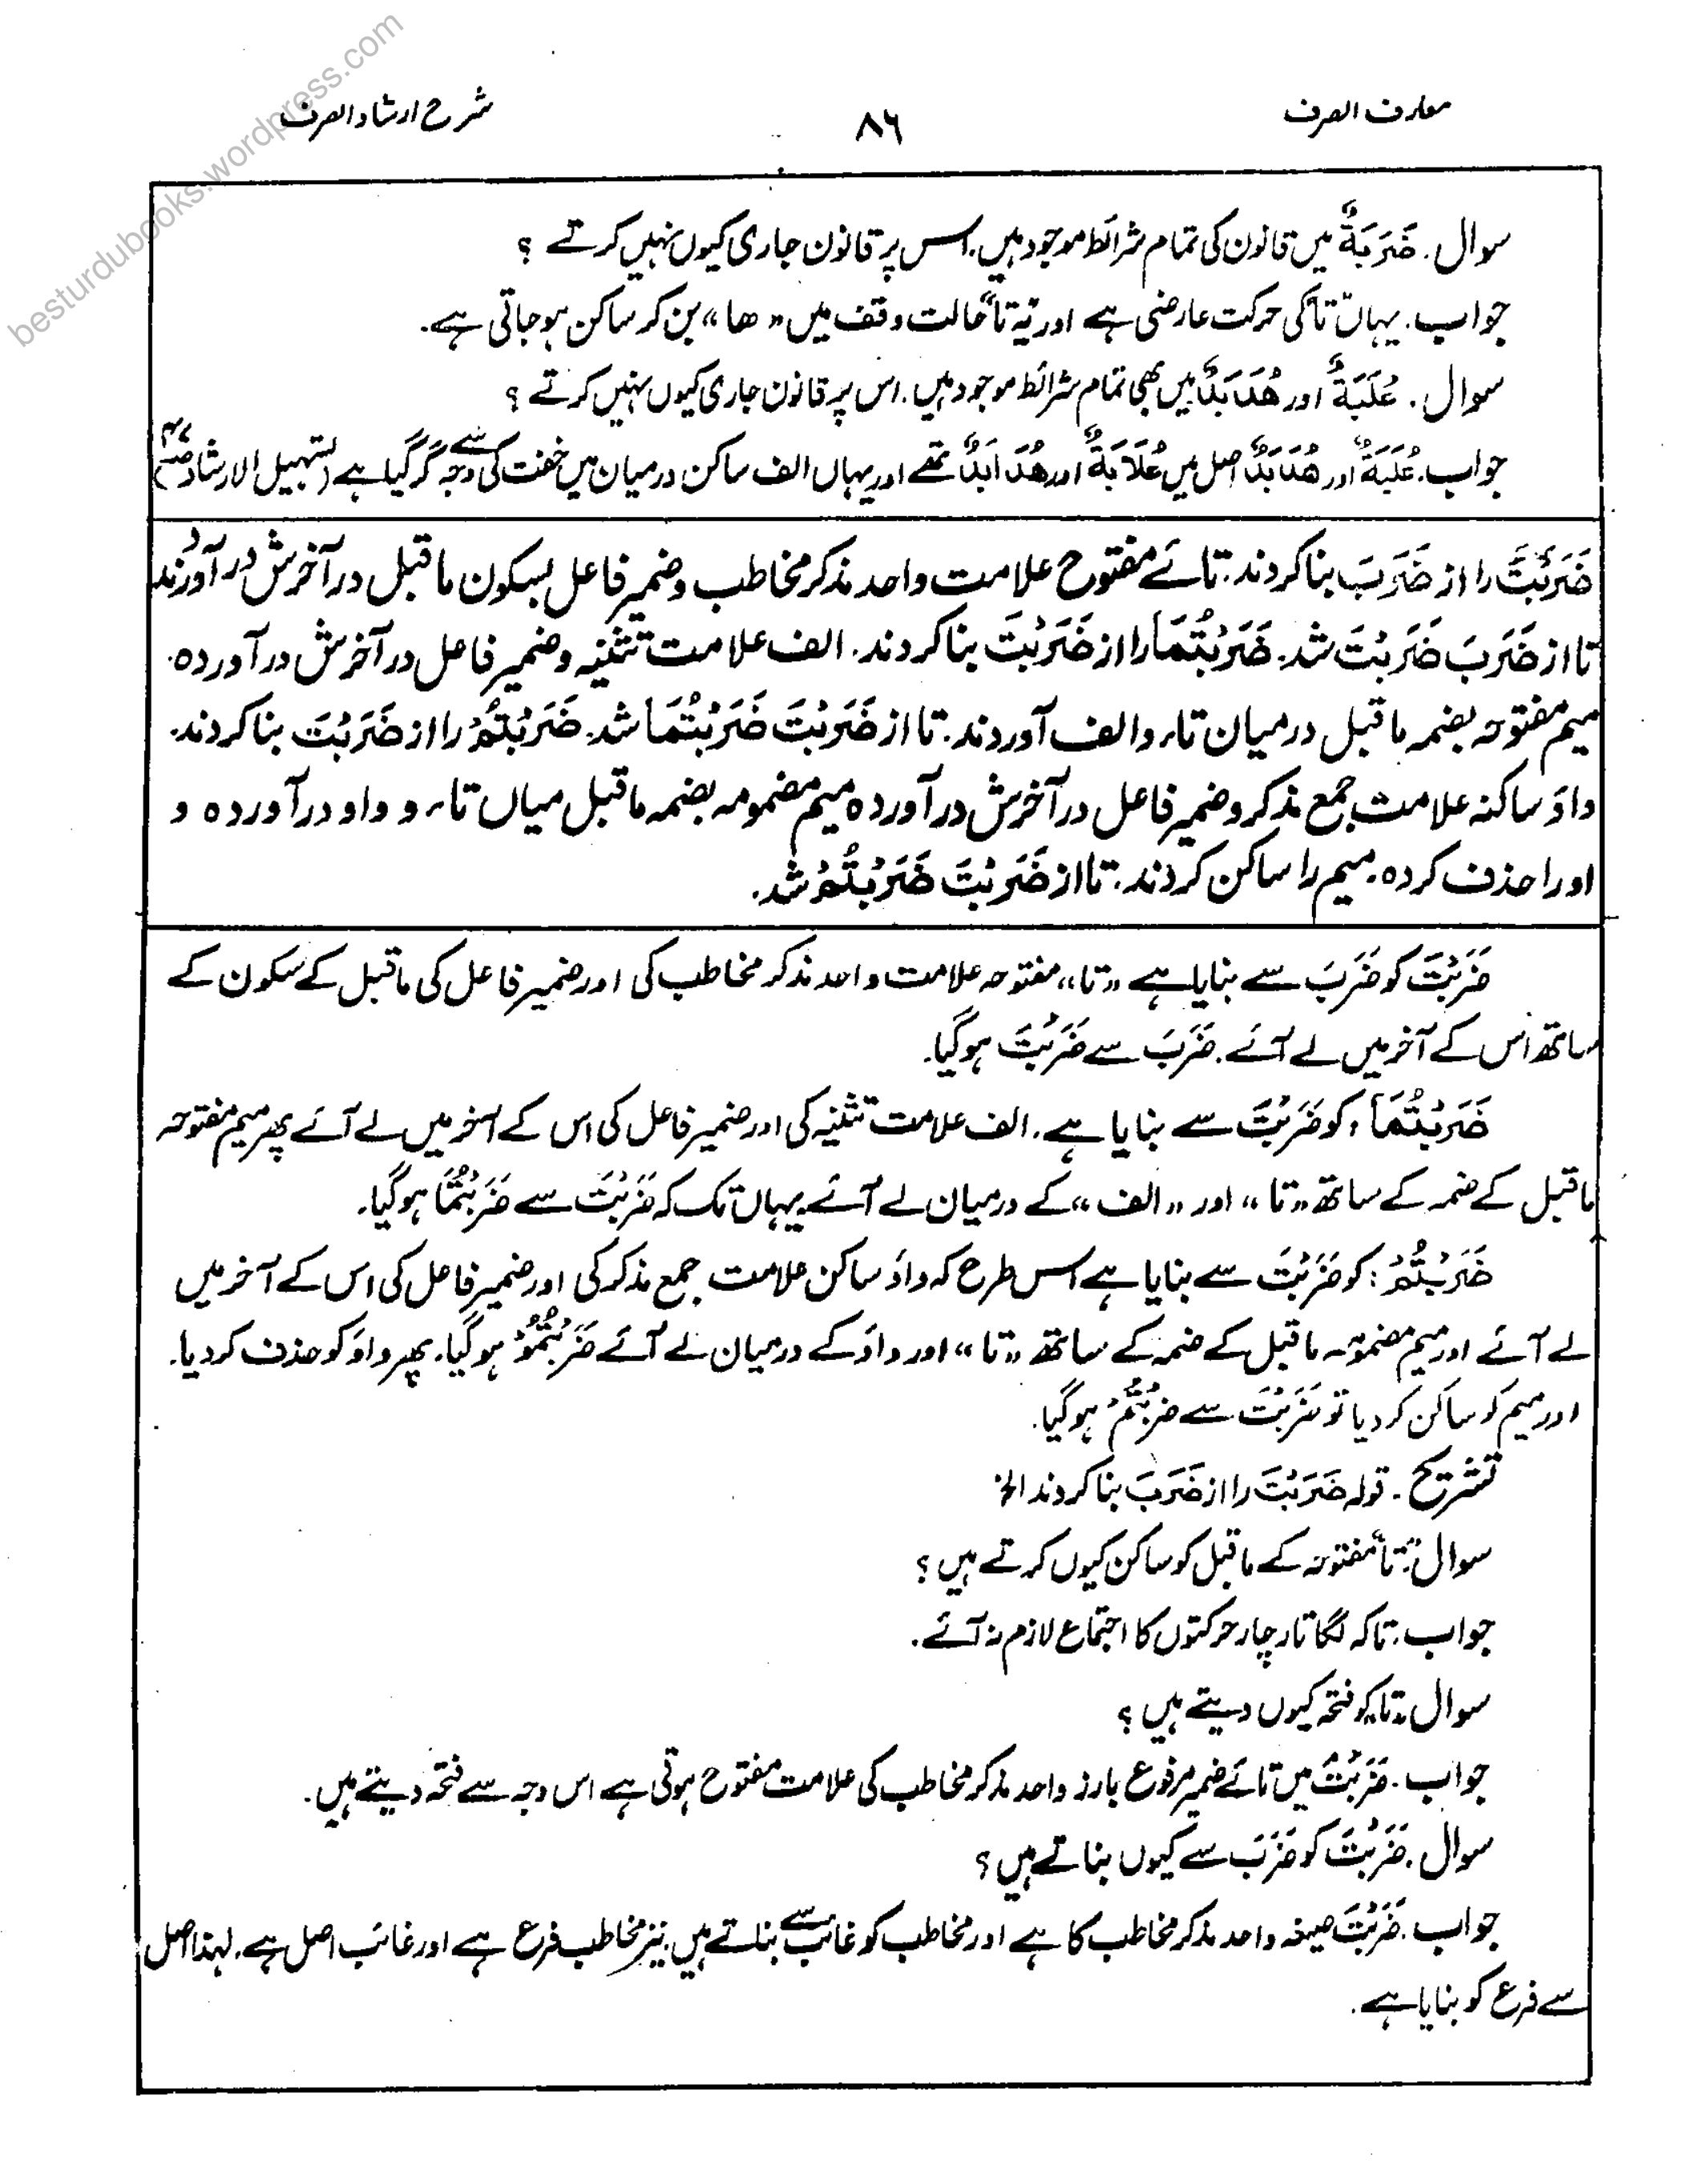 معارف الصرف
۸۶
شرح ارشاد الصرف
besturdubooks.wordpress.com
سوال. ضَرَبَةٌ میں قانون کی تمام شرائط موجود ہیں، اس پر قانون جاری کیوں نہیں کرتے ؟
جواب. یہاں "تا" کی حرکت عارضی ہے اور یہ "تا" حالت وقف میں "ھا" بن کر ساکن ہو جاتی ہے۔
سوال. عُلَبَةٌ اور هُدَبَدٌ میں بھی تمام شرائط موجود ہیں. اس پر قانون جاری کیوں نہیں کرتے ؟
جواب. عُلَبَةٌ اور هُدَبَدٌ اصل میں عُلَابَةٌ اور هُدَابَدٌ تھے اور یہاں الف ساکن درمیان میں خفت کی وجہ سے گر گیا ہے (تسہیل الارشاد
ضَرَبْتَ را از ضَرَبَ بنا کردند. تائے مفتوح علامت واحد مذکر مخاطب و ضمیر فاعل بسکون ماقبل در آخرش در آوردند
تا از ضَرَبَ ضَرَبْتَ شد. ضَرَبْتُمَا را از ضَرَبْتَ بنا کردند. الف علامت تثنیہ و ضمیر فاعل در آخرش در آورده.
میم مفتوحہ بضمہ ماقبل درمیان تاء و الف آوردند. تا از ضَرَبْتَ ضَرَبْتُمَا شد. ضَرَبْتُمْ را از ضَرَبْتَ بنا کردند.
واؤ ساکنہ علامت جمع مذکر و ضمیر فاعل در آخرش در آورده میم مضمومہ بضمہ ماقبل میاں تاء و واو در آورده و
او را حذف کرده. میم را ساکن کردند. تا از ضَرَبْتَ ضَرَبْتُمْ شد.
ضَرَبْتَ کو ضَرَبَ سے بنایا ہے "تا" مفتوحہ علامت واحد مذکر مخاطب کی اور ضمیر فاعل کی ماقبل کے سکون کے
ساتھ اس کے آخر میں لے آئے. ضَرَبَ سے ضَرَبْتَ ہو گیا.
ضَرَبْتُمَا، کو ضَرَبْتَ سے بنایا ہے. الف علامت تثنیہ کی اور ضمیر فاعل کی اس کے آخر میں لے آئے پھر میم مفتوحہ
ماقبل کے ضمہ کے ساتھ "تا" اور "الف" کے درمیان لے آئے یہاں تک کہ ضَرَبْتَ سے ضَرَبْتُمَا ہو گیا.
ضَرَبْتُمْ: کو ضَرَبْتَ سے بنایا ہے اس طرح کہ واؤ ساکن علامت جمع مذکر کی اور ضمیر فاعل کی اس کے آخر میں
لے آئے اور میم مضمومہ ماقبل کے ضمہ کے ساتھ "تا" اور واؤ کے درمیان لے آئے ضَرَبْتُمُوْ ہو گیا. پھر واؤ کو حذف کر دیا.
اور میم کو ساکن کر دیا تو ضَرَبْتَ سے ضَرَبْتُمْ ہو گیا.
تشریح. قولہ ضَرَبْتَ را از ضَرَبَ بنا کردند الخ
سوال: "تا" مفتوحہ کے ماقبل کو ساکن کیوں کرتے ہیں ؟
جواب. تاکہ لگاتار چار حرکتوں کا اجتماع لازم نہ آئے.
سوال: "تا" کو فتحہ کیوں دیتے ہیں ؟
جواب. ضَرَبْتَ میں تائے ضمیر مرفوع بارز واحد مذکر مخاطب کی علامت مفتوح ہوتی ہے اس وجہ سے فتحہ دیتے ہیں.
سوال. ضَرَبْتَ کو ضَرَبَ سے کیوں بناتے ہیں ؟
جواب. ضَرَبْتَ صیغہ واحد مذکر مخاطب کا ہے اور مخاطب کو غائب سے بناتے ہیں. نیز مخاطب فرع ہے اور غائب اصل ہے. لہذا اصل
سے فرع کو بنایا ہے.